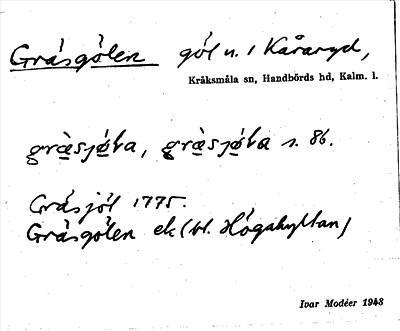 Gräsgölen göl n. i Kåraryd,
Kråksmåla sn, Handbörds hd, Kalm. l.
s. 86.
Gräsjöl 1775.
Gräsgölen ek (bl. Högahyltan)
Ivar Modéer 1948